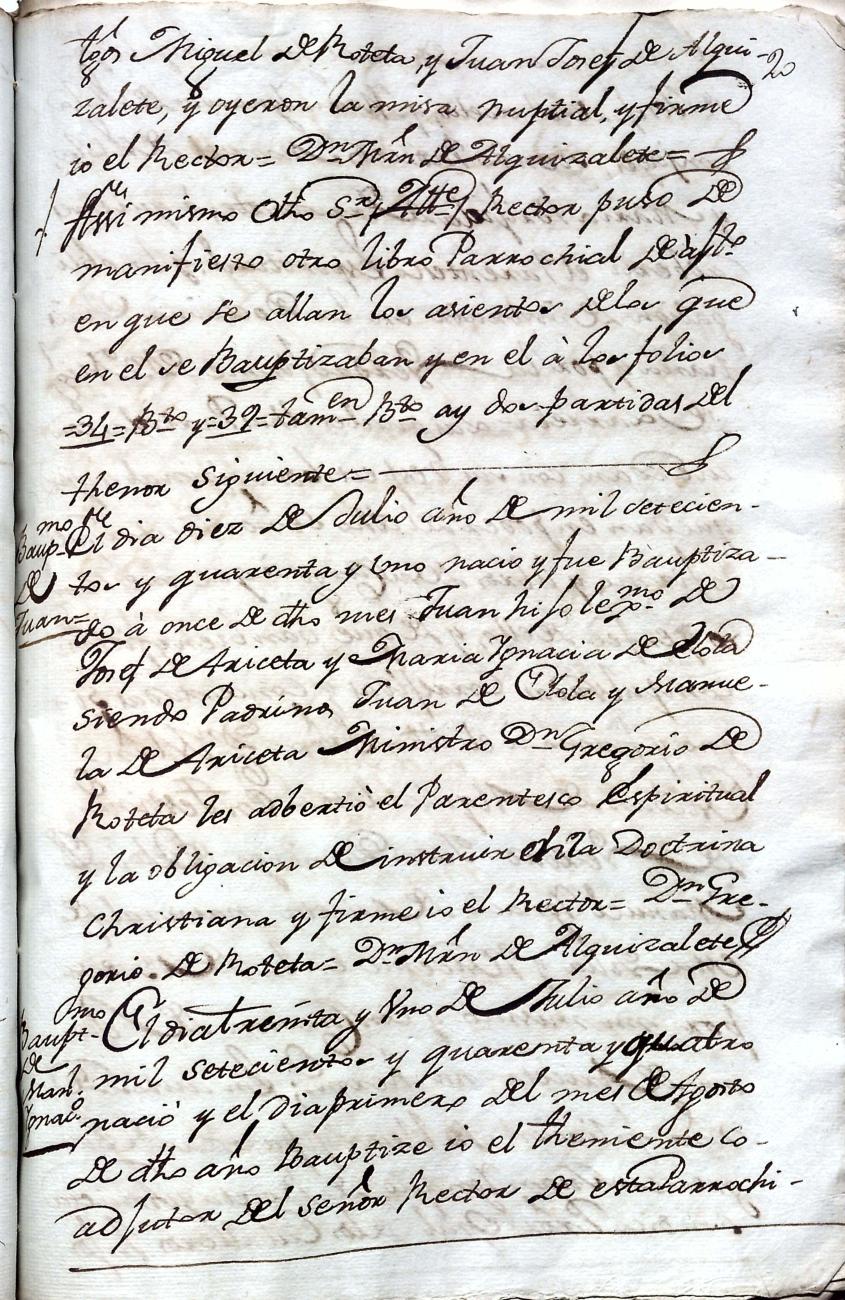 tgos Miguel de Roteta, y Juan Josef de Alqui- 20
zalete, y oyeron la misa nuptial, y firme
io el Rector= Dn Mrn de Alquizalete=
Assi mismo dho Sr Thte Rector puso de
manifiesto otro libro Parrochial de
en que se allan los asientos delos que
en el se Bauptizaban y en el à los folios
=34= Bto y=39=tamen Bto ay dos partidas del
thenor siguiente=
Baupmo
de
Juan=
El dia diez de Julio año de mil setecien-
tos y quarenta y uno nacio y fue Bauptiza-
do à once de dho mes Juan hijo lexmo de
Josef de Ariceta y Maria Ygnacia de Elola
siendo Padrinos Juan de Elola y Manue-
la de Ariceta Ministro Dn Gregorio de
Roteta les adbertiò el Parentesco Espiritual
y la obligacion de instruir en la Doctrina
Christiana y firme io el Rector= Dn Gre-
gorio de Roteta= Dn Mrn de Alquizalete
Bauptmo
de
Manl
Ygnaco
El dia treinta y Uno de Julio año de
mil setecientos y quarenta y quatro
naciò y el dia primero del mes de Agosto
de dho año Bauptize io el theniente Co-
adjutor del señor Rector de esta Parrochi-